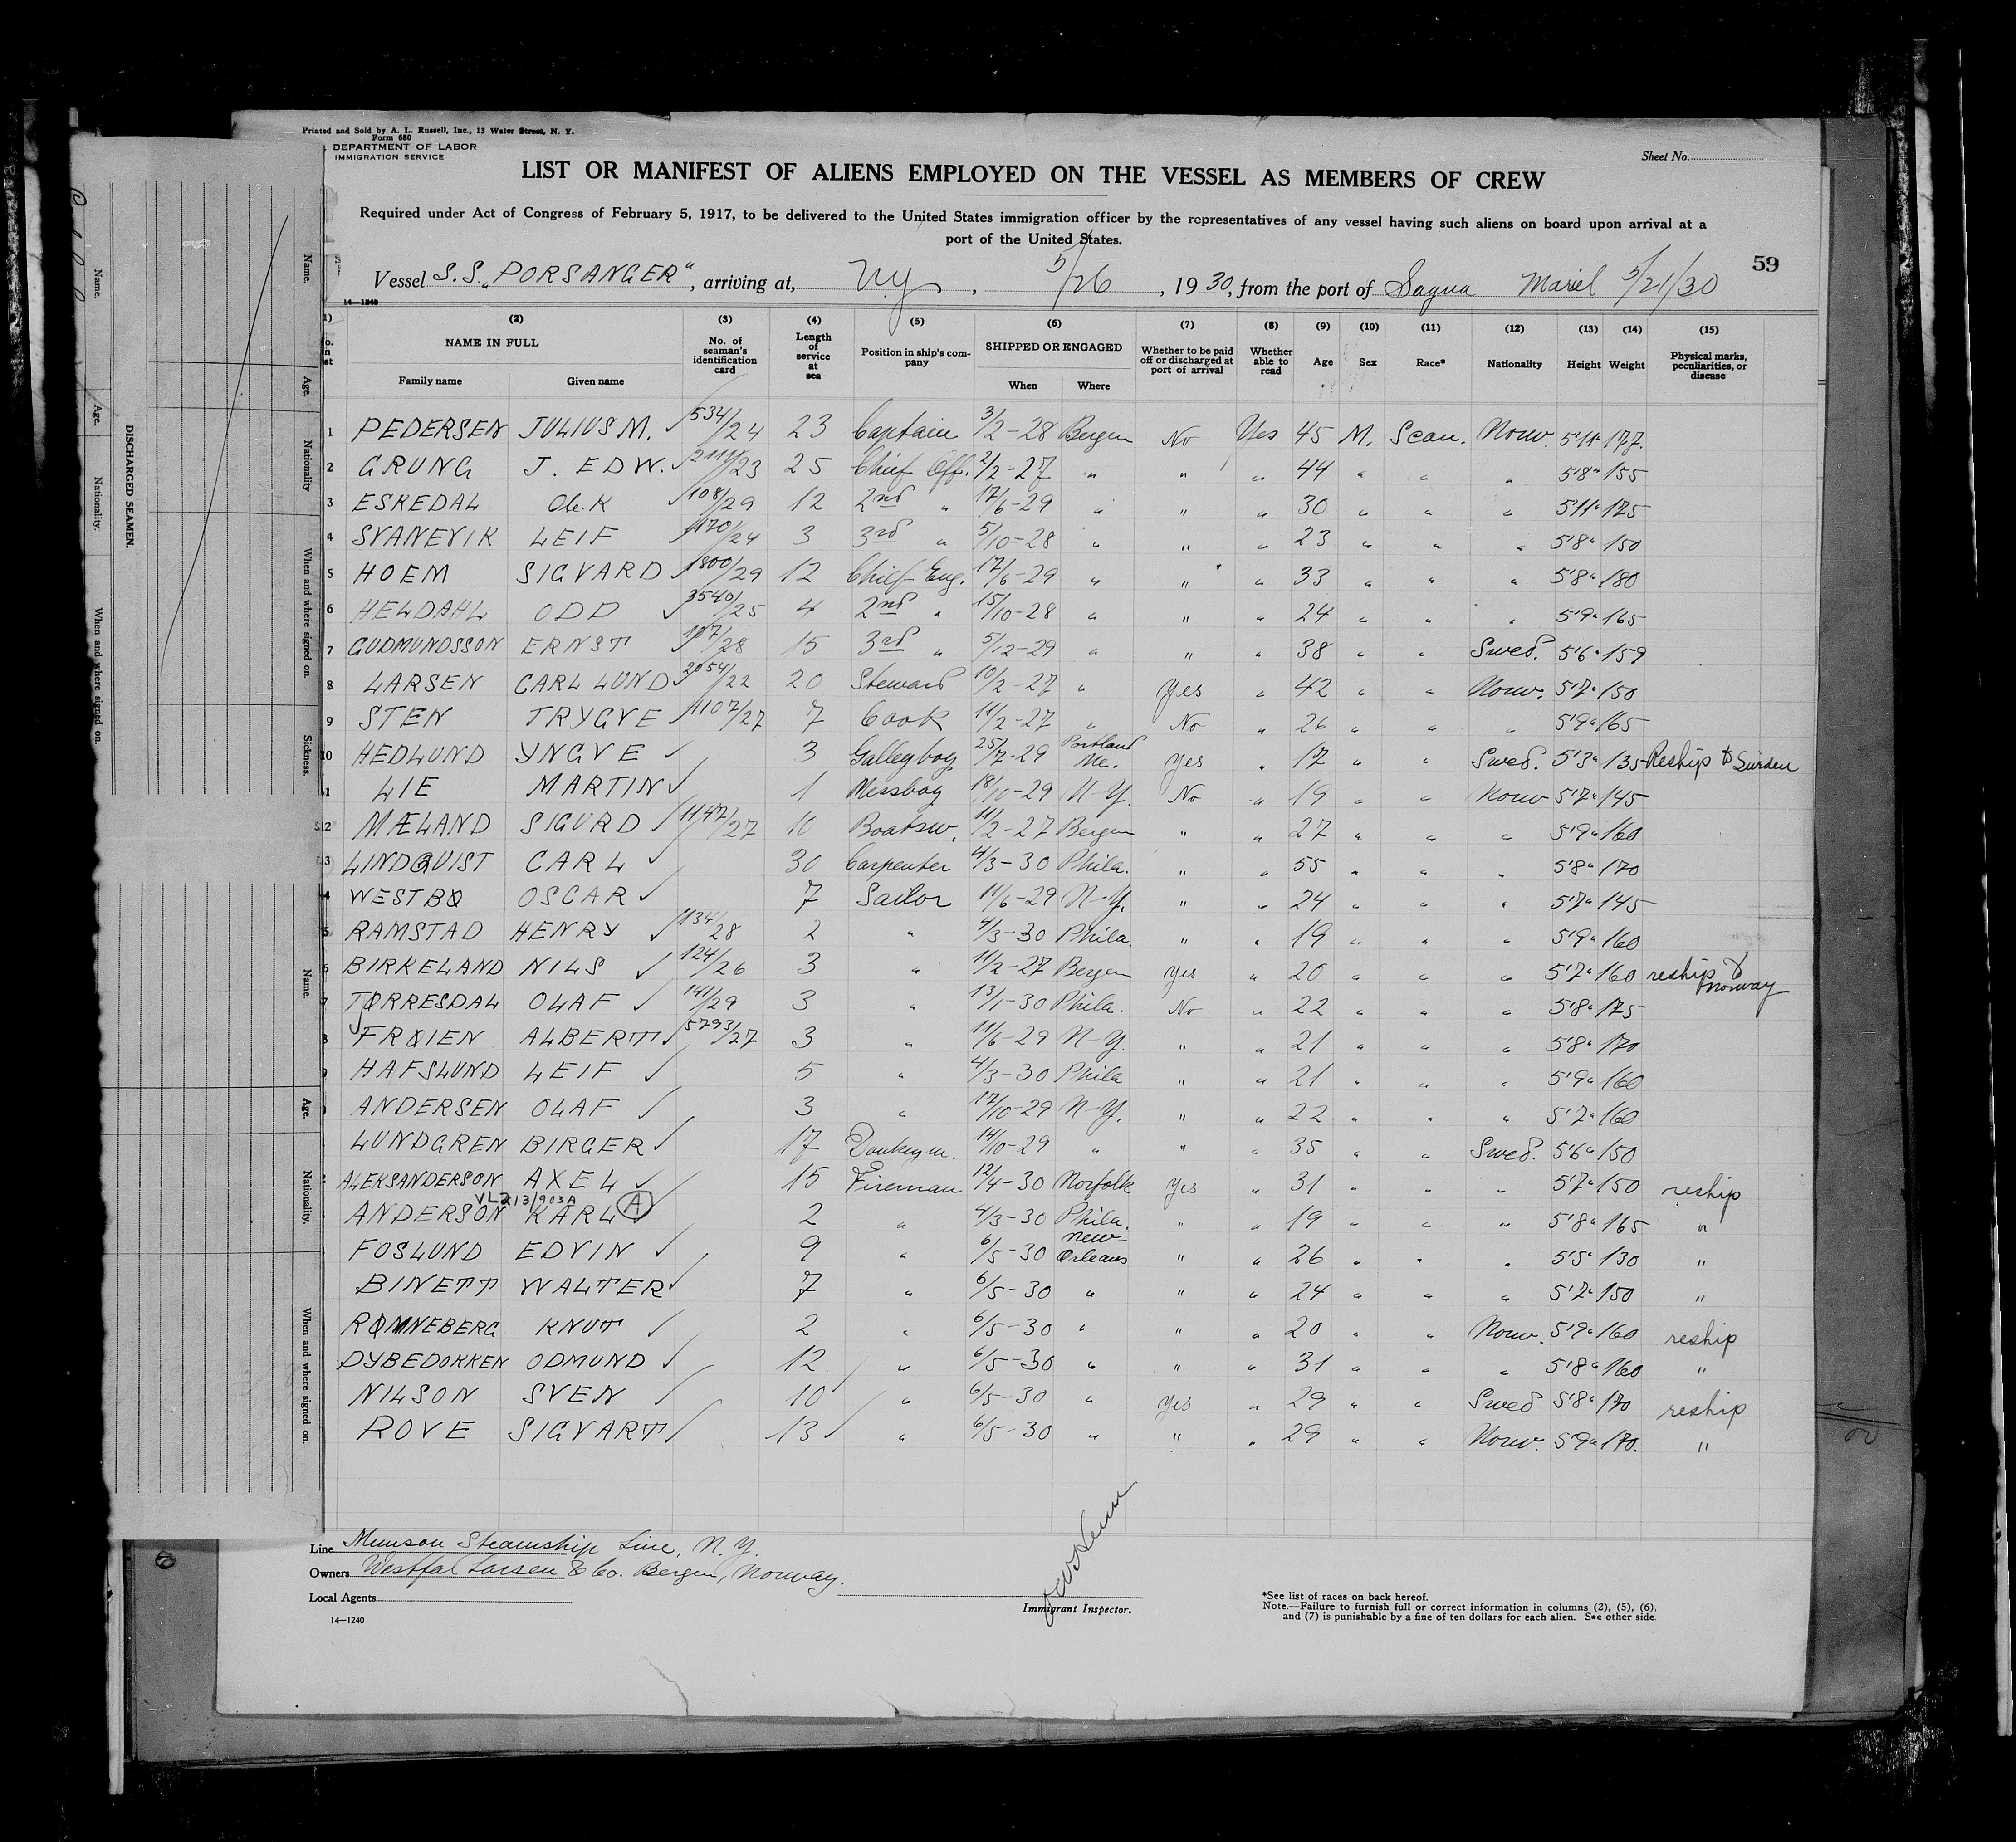 Printed and Sold by A. L. Russell, Inc., 13 Water Street, N. Y.
Form 680
DEPARTMENT OF LABOR
IMMIGRATION SERVICE
Sheet No.
LIST OR MANIFEST OF ALIENS EMPLOYED ON THE VESSEL AS MEMBERS OF CREW
Required under Act of Congress of February 5, 1917, to be delivered to the United States immigration officer by the representatives of any vessel having such aliens on board upon arrival at a
port of the United States.
59
Vessel S.S. „PORSANGER“, arriving at, N.Y., 5/26, 1930, from the port of Sagua Mariel 5/21/30
14—1240
1) (2) (3) (4) (5) (6) (7) (8) (9) (10) (11) (12) (13) (14) (15)
NAME IN FULL No. of seaman's identification card Length of service at sea Position in ship's company SHIPPED OR ENGAGED Whether to be paid off or discharged at port of arrival Whether able to read Age Sex Race* Nationality Height Weight Physical marks, peculiarities, or disease
Family name Given name When Where
1 PEDERSEN JULIUS M. ✓ 534/24 23 Captain 3/2-28 Bergen No Yes 45 M. Scan. Norw. 5'11" 177.
2 GRUNG J. EDW. ✓ 2111/23 25 Chief Off. 2/2-27 " " " 44 " " " 5'8" 155
3 ESKEDAL Ole K ✓ 108/29 12 2nd " 17/6-29 " " " 30 " " " 5'11" 175
4 SVANEVIK LEIF ✓ 1170/24 3 3rd " 5/10-28 " " " 23 " " " 5'8" 150
5 HOEM SIGVARD ✓ 1800/29 12 Chief Eng. 17/6-29 " " " 33 " " " 5'8" 180
6 HELDAHL ODD ✓ 3540/25 4 2nd " 15/10-28 " " " 24 " " " 5'9" 165
7 GUDMUNDSSON ERNST ✓ 107/28 15 3rd " 5/12-29 " " " 38 " " Swed. 5'6" 159
8 LARSEN CARL LUND ✓ 2054/22 20 Steward 10/2-27 " Yes " 42 " " Norw. 5'7" 150
9 STEN TRYGVE ✓ 1107/27 7 Cook 11/2-27 " No " 26 " " " 5'9" 165
10 HEDLUND YNGVE ✓ 3 Galleyboy 25/7-29 Portland Me. Yes " 17 " " Swed. 5'3" 135 Reship to Sweden
1 LIE MARTIN ✓ 1 Messboy 18/10-29 N-Y. No " 19 " " Norw 5'7" 145
12 MÆLAND SIGURD ✓ 1147/27 10 Boatsw. 11/2-27 Bergen " " 27 " " " 5'9" 160
3 LINDQUIST CARL ✓ 30 Carpenter 4/3-30 Phila. " " 55 " " " 5'8" 170
4 WESTBØ OSCAR ✓ 7 Sailor 11/6-29 N-Y. " " 24 " " " 5'7" 145
5 RAMSTAD HENRY ✓ 1134/28 2 " 4/3-30 Phila. " " 19 " " " 5'9" 160
6 BIRKELAND NILS ✓ 124/26 3 " 11/2-27 Bergen Yes " 20 " " " 5'7" 160 reship to Norway
7 TØRRESDAL OLAF ✓ 141/29 3 " 13/1-30 Phila. No " 22 " " " 5'8" 175
8 FRØIEN ALBERT ✓ 5793/27 3 " 11/6-29 N-Y. " " 21 " " " 5'8" 170
9 HAFSLUND LEIF ✓ 5 " 4/3-30 Phila " " 21 " " " 5'9" 160
ANDERSEN OLAF ✓ 3 " 17/10-29 N-Y. " " 22 " " " 5'7" 160
LUNDGREN BIRGER ✓ 17 Donkeym. 14/10-29 " " " 35 " " Swed. 5'6" 150
ALEKSANDERSON AXEL ✓ 15 Fireman 12/4-30 Norfolk Yes " 31 " " " 5'7" 150 reship
VL213/903A
ANDERSON KARL Ⓐ ✓ 2 " 4/3-30 Phila. " " 19 " " " 5'8" 165 "
FOSLUND EDVIN ✓ 9 " 6/5-30 New-Orleans " " 26 " " " 5'5" 130 "
BINETT WALTER ✓ 7 " 6/5-30 " " " 24 " " " 5'7" 150 "
RØNNEBERG KNUT ✓ 2 " 6/5-30 " " " 20 " " Norw. 5'9" 160 reship
DYBEDOKKEN ODMUND ✓ 12 " 6/5-30 " " " 31 " " " 5'8" 160 "
NILSON SVEN ✓ 10 " 6/5-30 " Yes " 29 " " Swed 5'8" 170 reship
ROVE SIGVART ✓ 13 " 6/5-30 " " " 29 " " Norw. 5'9" 170. "
Line Munson Steamship Line, N.Y.
Owners Westfal Larsen & Co. Bergen, Norway.
Local Agents
14—1240
Immigrant Inspector.
*See list of races on back hereof.
Note.—Failure to furnish full or correct information in columns (2), (5), (6),
and (7) is punishable by a fine of ten dollars for each alien. See other side.
DISCHARGED SEAMEN.
Name. Age. Nationality. When and where signed on.
Name. Age. Nationality When and where signed on. Sickness.
Name. Age. Nationality. When and where signed on.